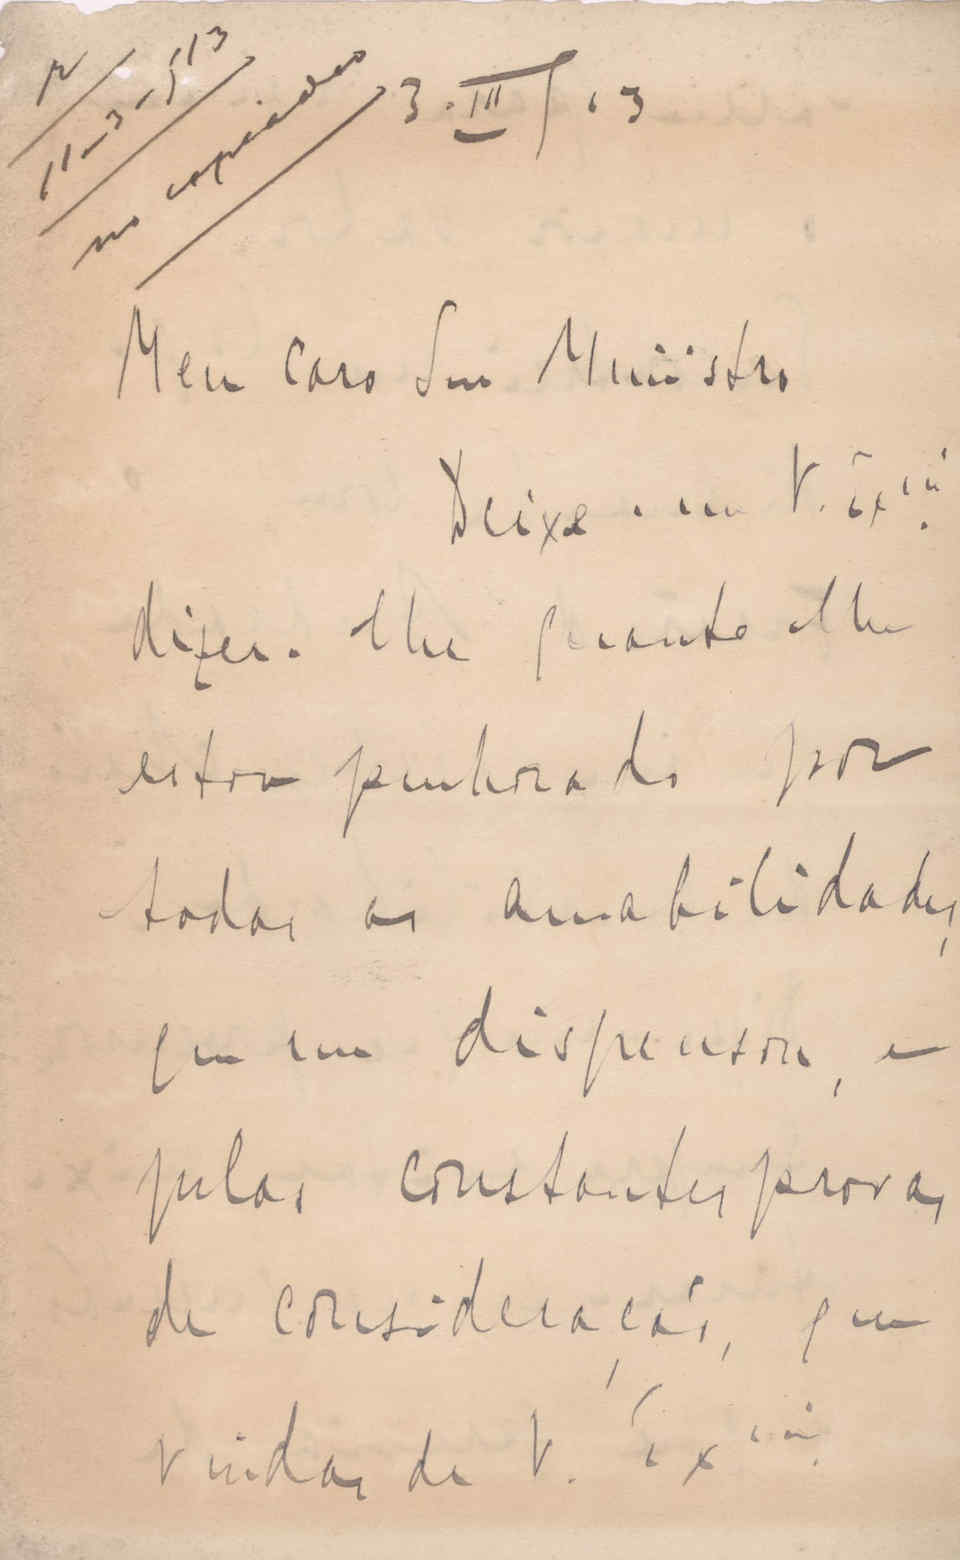 R
11-3-913
no copiador
3.III/913
Meu caro Snr Ministro
Deixe-me V. Ex.cia
dizer-lhe quanto lhe
estou penhorado por
todas as amabilidades,
que me dispensou, e
pelas constantes provas
de consideração, que
vindas de V. Ex.cia